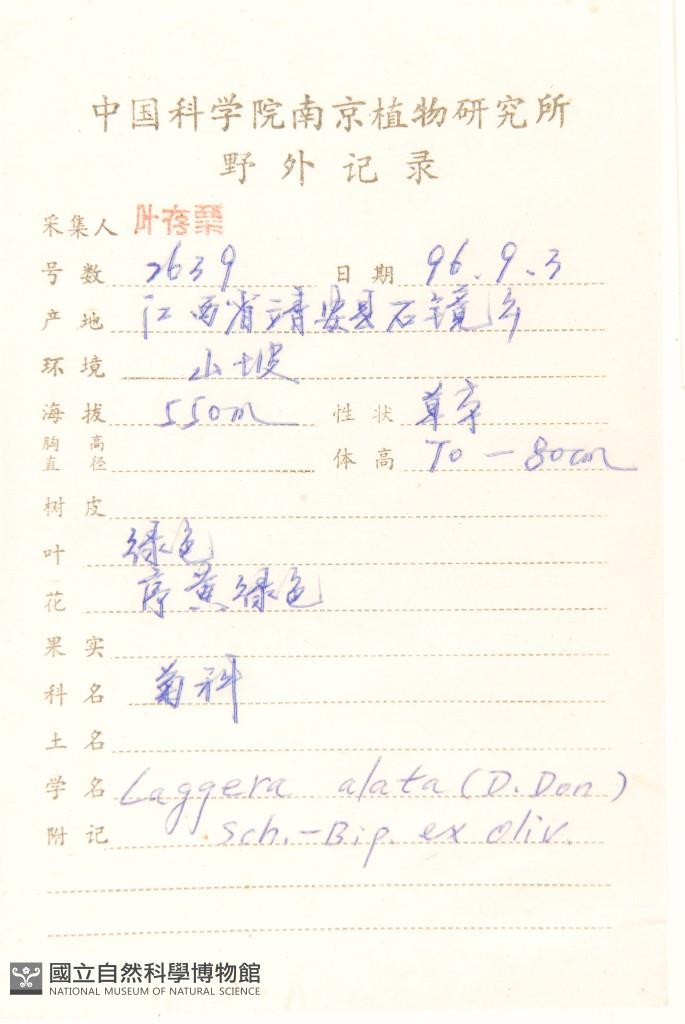 中国科学院南京植物研究所
野外记录
采集人 叶存粟
号数 2639 日期 96.9.3
产地 江西省靖安县石镜乡
环境 山坡
海拔 550m 性状 草本
胸高直径 体高 70-80cm
树皮
叶 绿色
花 序黄绿色
果实
科名 菊科
土名
学名 Laggera alata (D.Don)
附记 Sch.-Bip. ex Oliv.
國立自然科學博物館
NATIONAL MUSEUM OF NATURAL SCIENCE